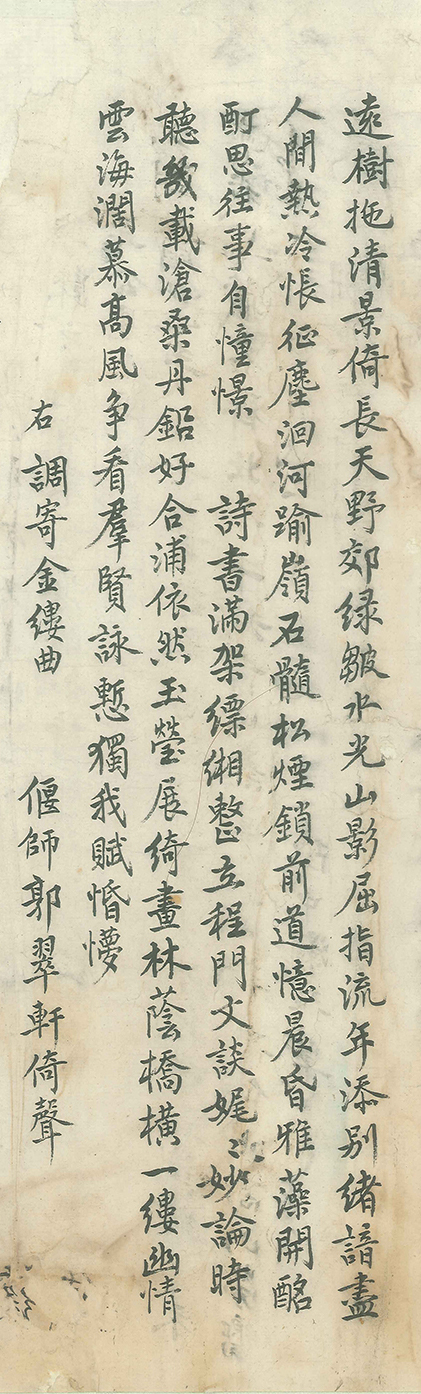 遠樹拖清景倚長天野郊绿皺水光山影屈指流年添别緒諳盡
人間熱冷悵征塵洄河踰嶺石髓松煙鎖前道憶晨昏雅藻開酩
酊思往事自憧憬 詩書滿架縹緗整立程門文談娓〻妙論時
聽幾載滄桑丹鉛好合浦依然玉瑩展綺畫林蔭橋橫一縷幽情
雲海濶慕高風争看羣賢詠慙獨我賦惛懜
右調寄金縷曲 偃師郭翠軒倚聲